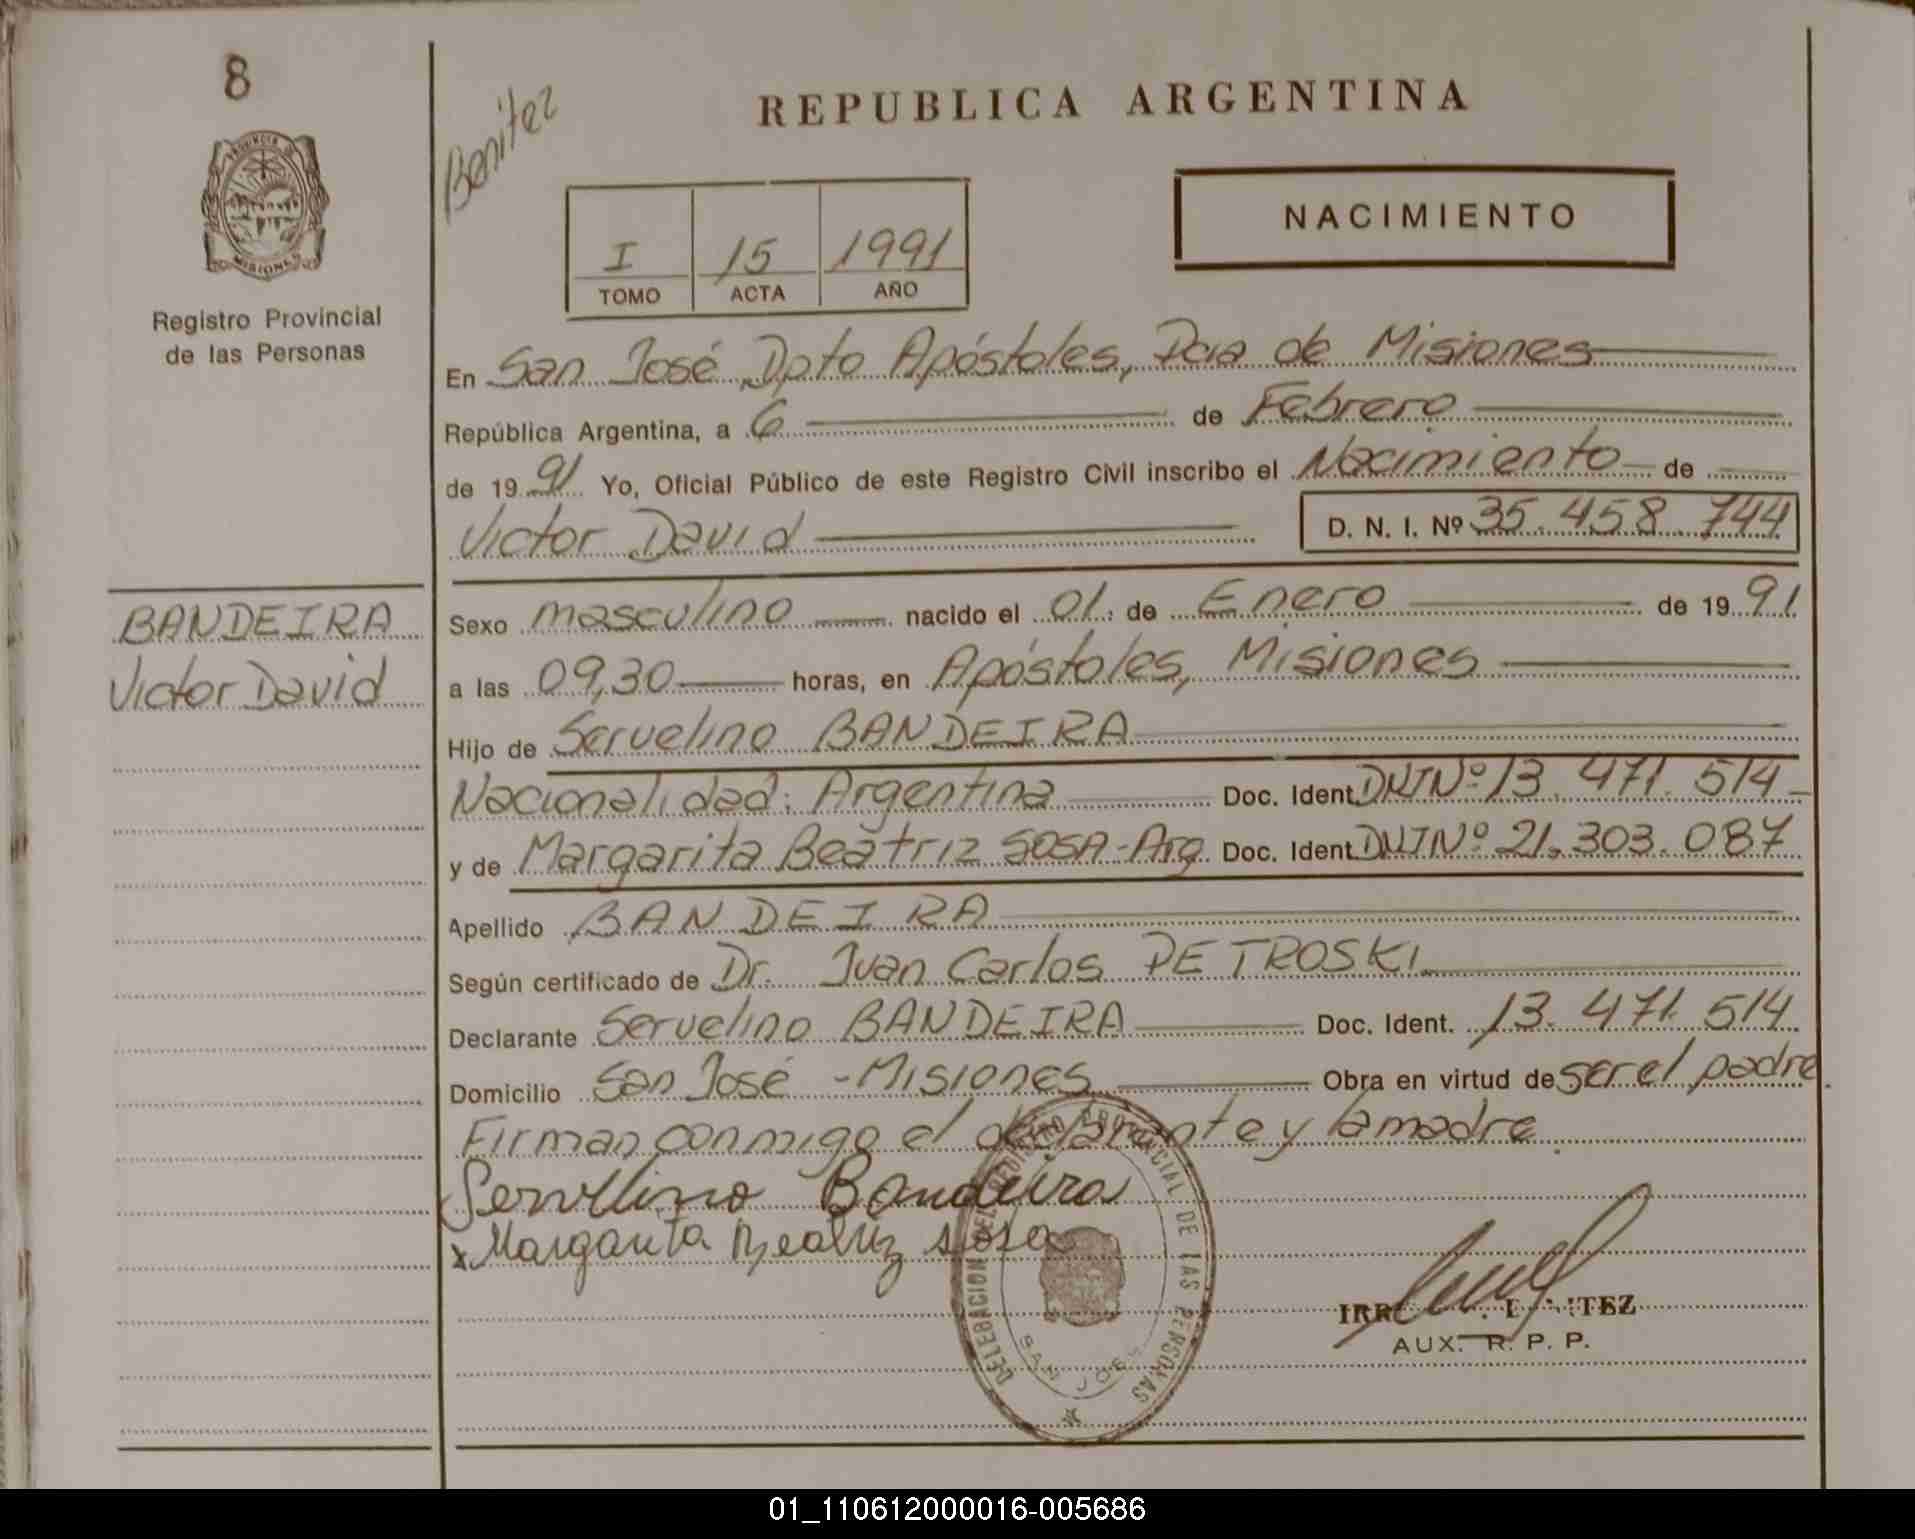 8
PROVINCIA DE
MISIONES
Registro Provincial
de las Personas
BANDEIRA
Victor David
Benitez
REPUBLICA ARGENTINA
NACIMIENTO
I 15 1991
TOMO ACTA AÑO
En San José, Dpto Apóstoles, Pcia de Misiones
República Argentina, a 6 de Febrero
de 1991 Yo, Oficial Público de este Registro Civil inscribo el Nacimiento de
Victor David D. N. I. Nº 35.458.744
Sexo masculino nacido el 01 de Enero de 1991
a las 09,30 horas, en Apóstoles, Misiones
Hijo de Servelino BANDEIRA
Nacionalidad: Argentina Doc. Ident. DNI Nº 13.471.514
y de Margarita Beatriz SOSA-Arg. Doc. Ident. DNI Nº 21.303.087
Apellido BANDEIRA
Según certificado de Dr. Juan Carlos PETROSKI
Declarante Servelino BANDEIRA Doc. Ident. 13.471.514
Domicilio San José - Misiones Obra en virtud de ser el padre.
Firman conmigo el declarante y la madre.
Servelino Bandeira
x Margarita Beatriz Sosa
DELEGACION DEL REGISTRO PROVINCIAL DE LAS PERSONAS
SAN JOSE
AUX. R. P. P.
01_110612000016-005686